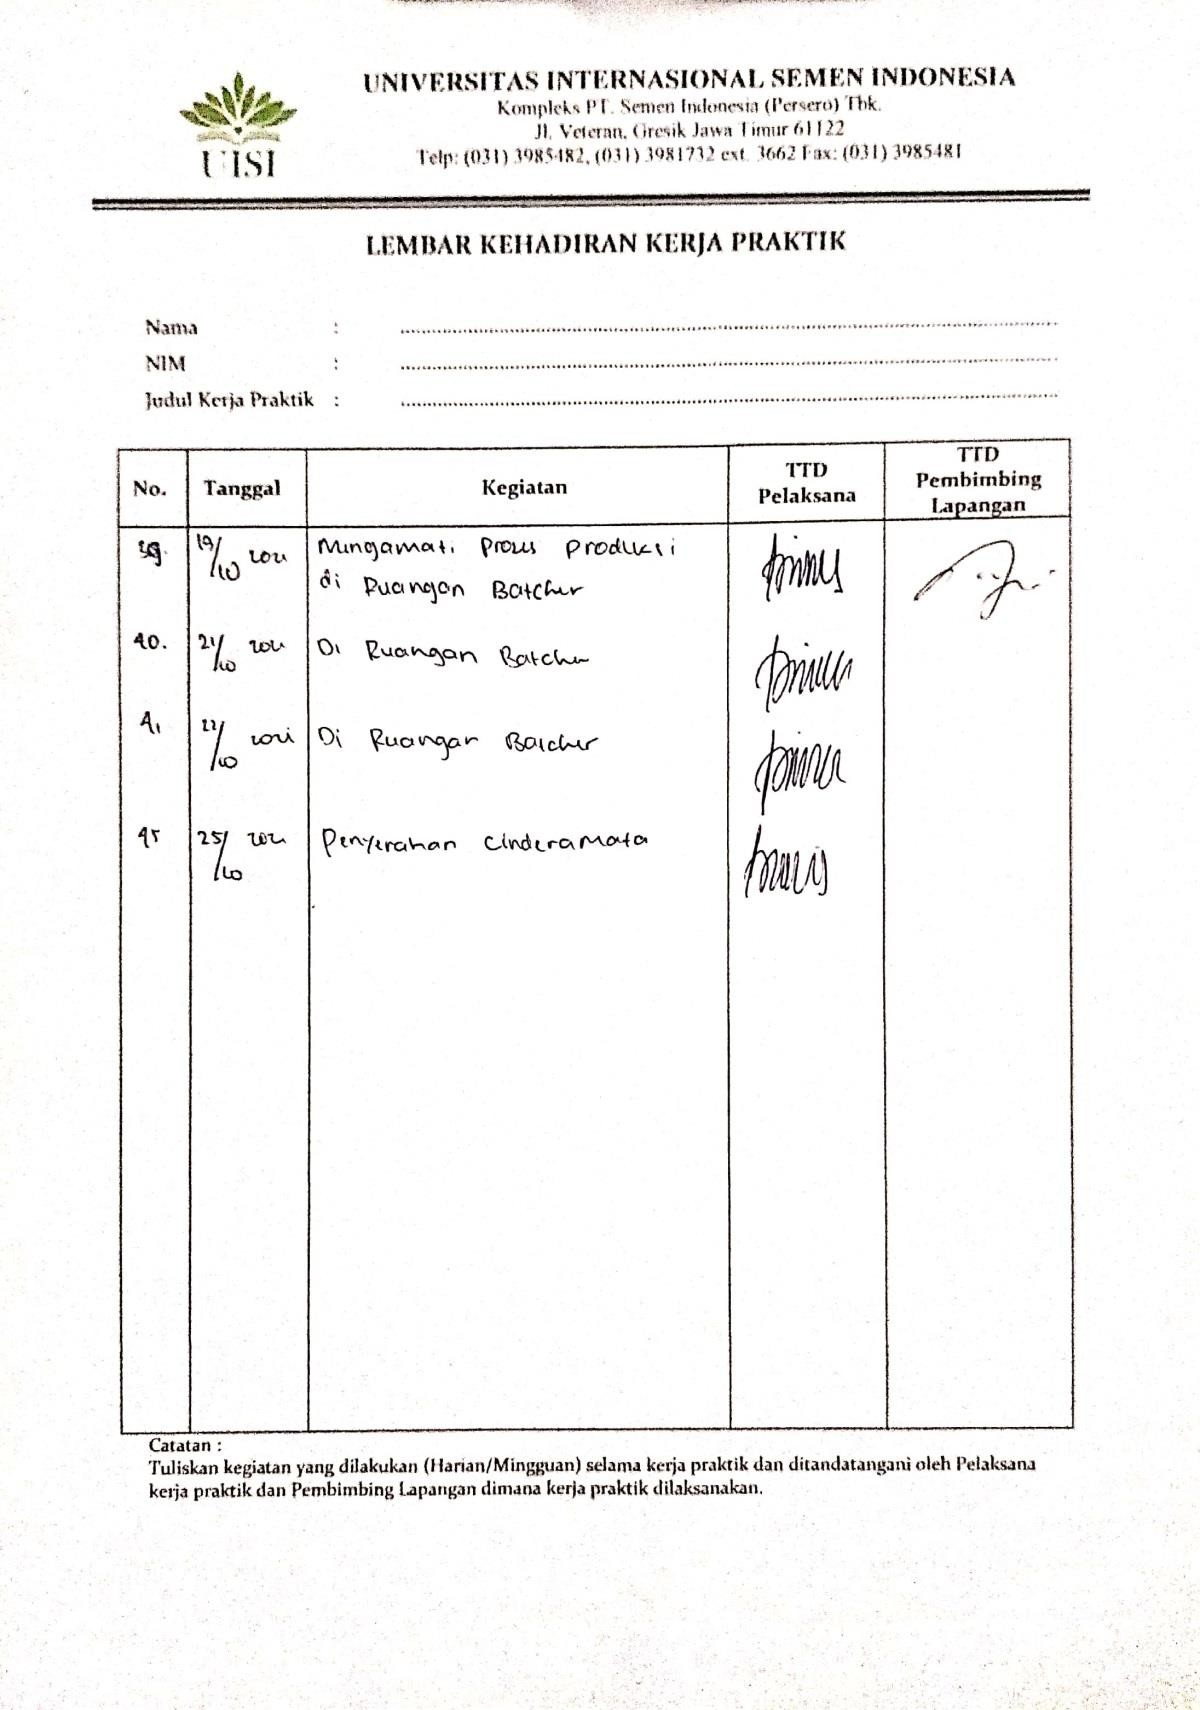 UNIVERSITAS INTERNASIONAL SEMEN INDONESIA
Kompleks PT. Semen Indonesia (Persero) Tbk.
Jl. Veteran, Gresik Jawa Timur 61122
Telp: (031) 3985482, (031) 3981732 ext. 3662 Fax: (031) 3985481
UISI
LEMBAR KEHADIRAN KERJA PRAKTIK
Nama :
NIM :
Judul Kerja Praktik :
No. Tanggal Kegiatan TTD Pelaksana TTD Pembimbing Lapangan
39. 19/10 2021 Mengamati Proses Produksi
di Ruangan Batcher
40. 21/10 2021 Di Ruangan Batcher
41 22/10 2021 Di Ruangan Batcher
45 25/10 2021 Penyerahan Cinderamata
Catatan :
Tuliskan kegiatan yang dilakukan (Harian/Mingguan) selama kerja praktik dan ditandatangani oleh Pelaksana
kerja praktik dan Pembimbing Lapangan dimana kerja praktik dilaksanakan.